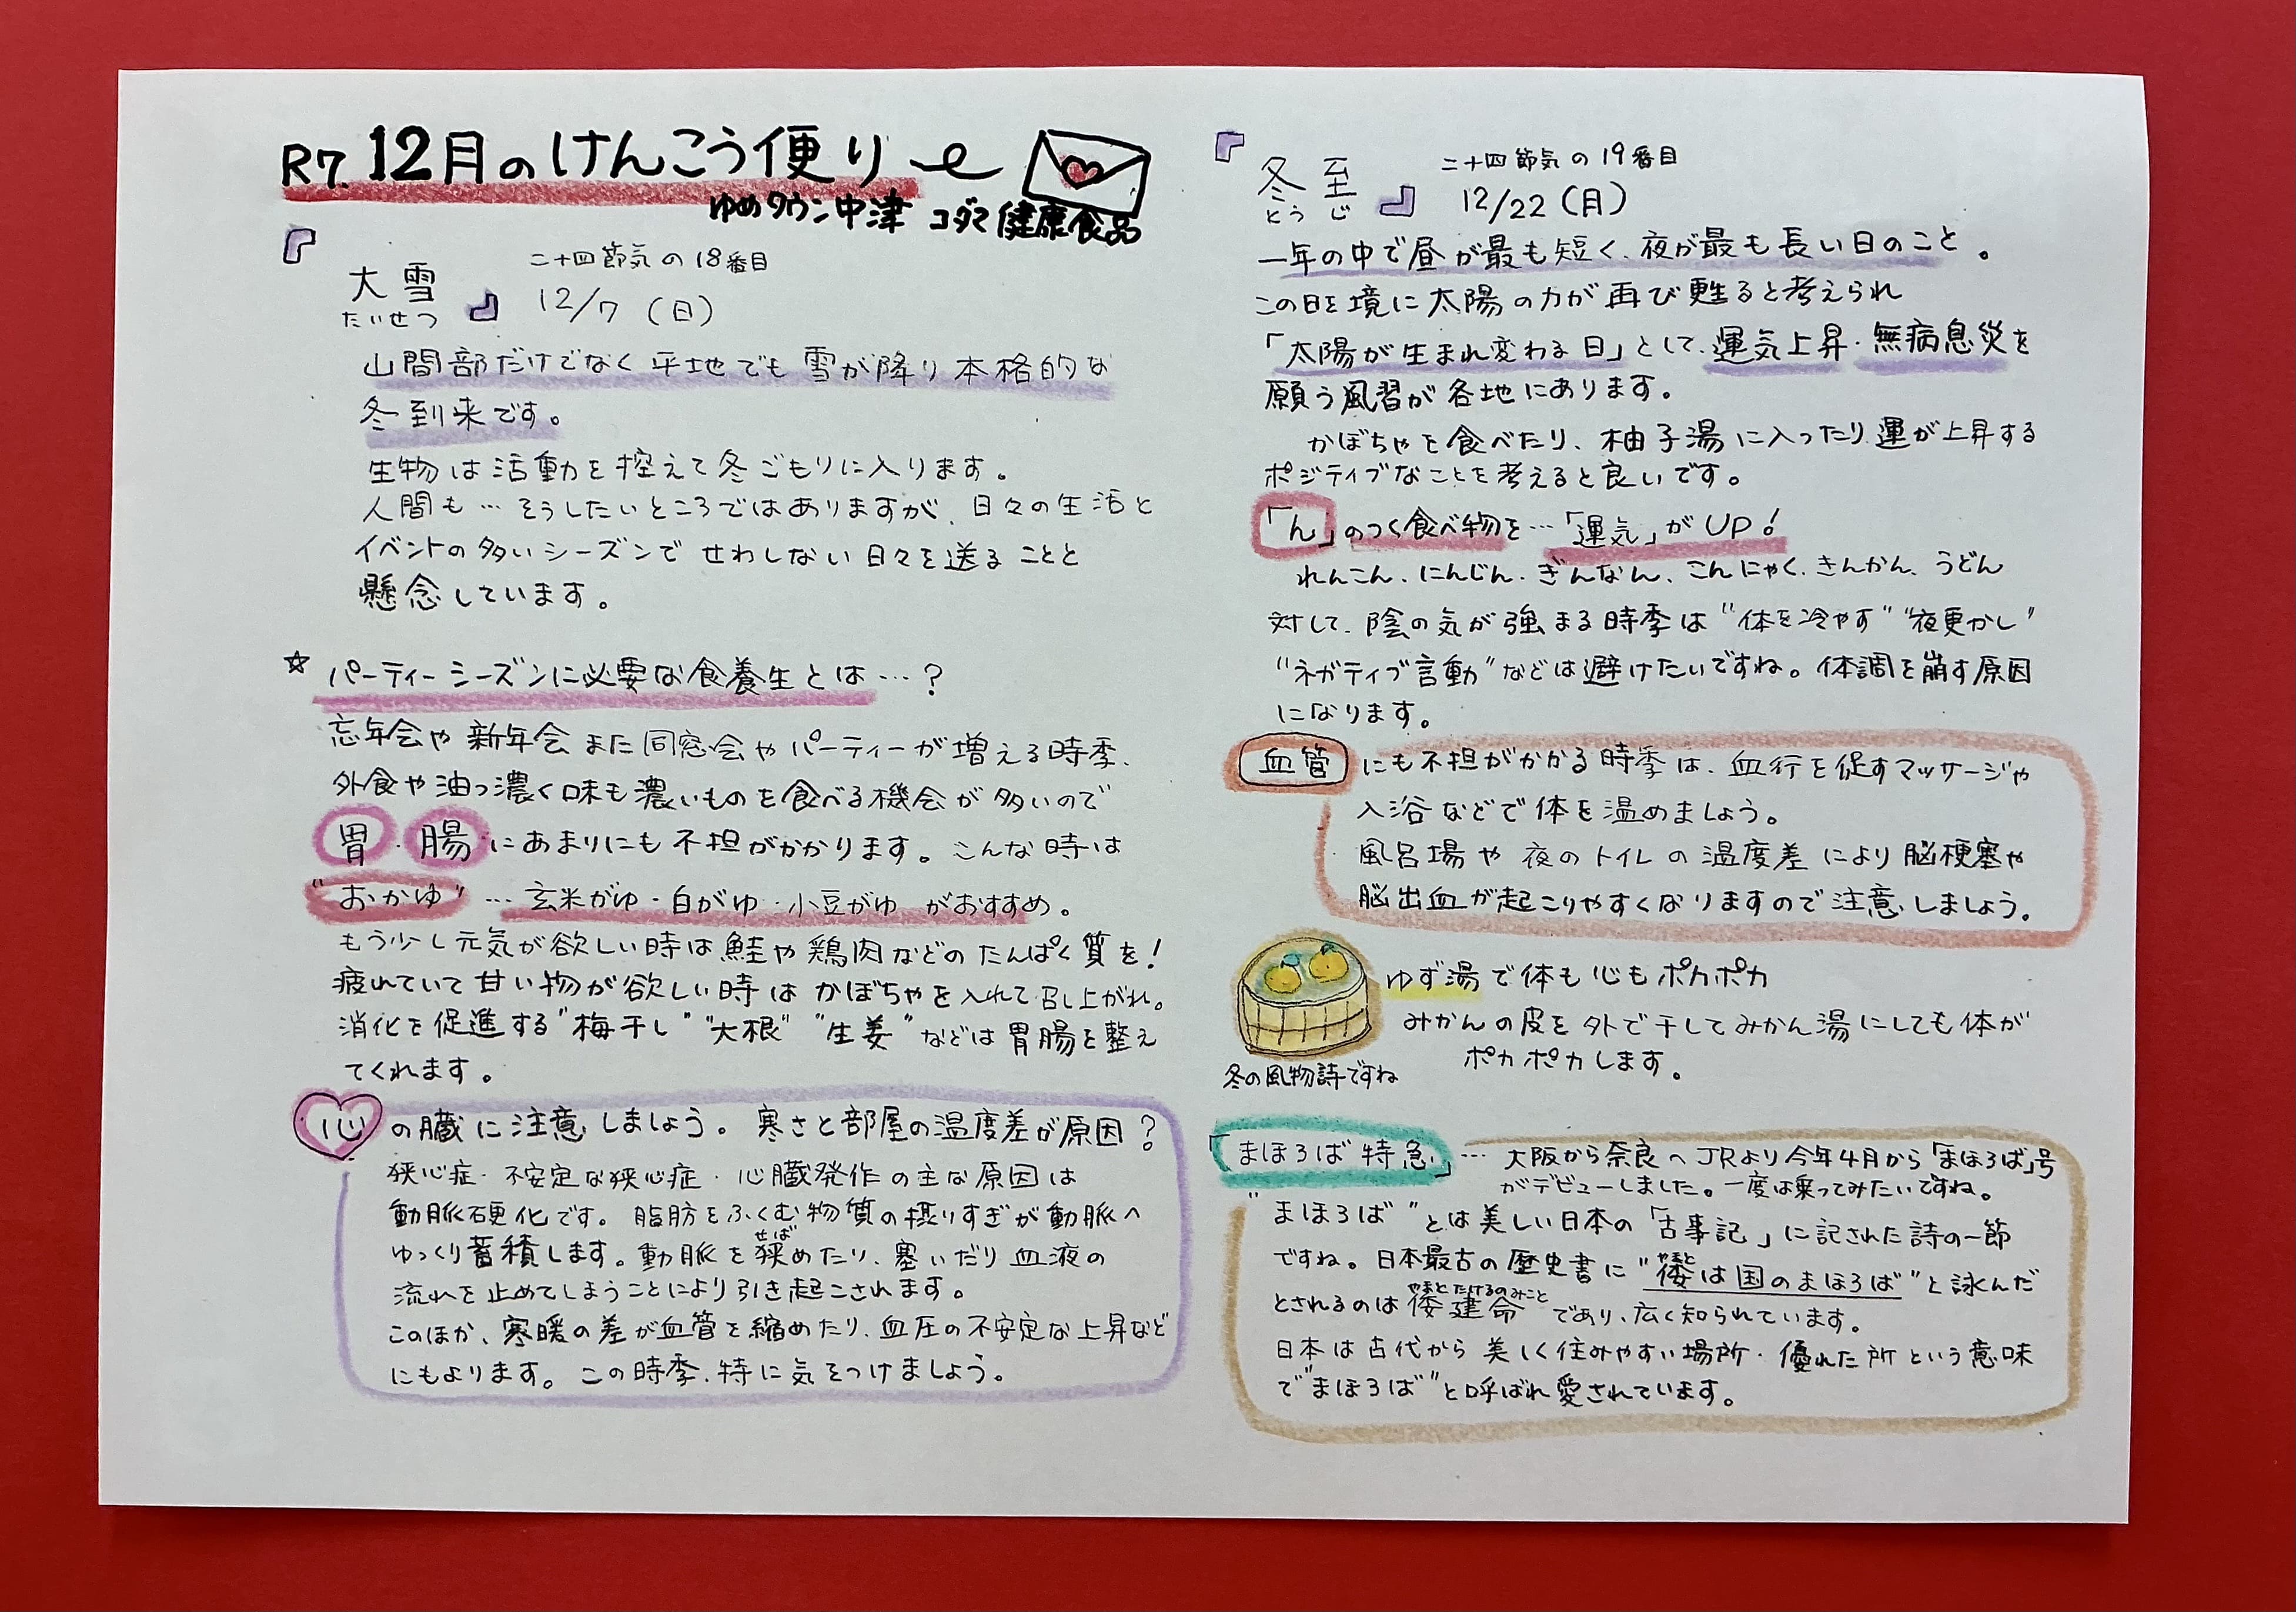 R7. 12月のけんこう便り
ゆめタウン中津 コダマ健康食品
『大雪』 二十四節気の18番目
たいせつ 12/7(日)
山間部だけでなく平地でも雪が降り本格的な
冬到来です。
生物は活動を控えて冬ごもりに入ります。
人間も…そうしたいところではありますが、日々の生活と
イベントの多いシーズンでせわしない日々を送ることと
懸念しています。
☆パーティーシーズンに必要な食養生とは…?
忘年会や新年会また同窓会やパーティーが増える時季、
外食や油っ濃く味も濃いものを食べる機会が多いので
胃・腸にあまりにも不担がかかります。こんな時は
"おかゆ"…玄米がゆ・白がゆ・小豆がゆ がおすすめ。
もう少し元気が欲しい時は鮭や鶏肉などのたんぱく質を!
疲れていて甘い物が欲しい時はかぼちゃを入れて召し上がれ。
消化を促進する"梅干し""大根""生姜"などは胃腸を整え
てくれます。
心の臓に注意しましょう。寒さと部屋の温度差が原因?
狭心症・不安定な狭心症・心臓発作の主な原因は
動脈硬化です。脂肪をふくむ物質の摂りすぎが動脈へ
ゆっくり蓄積します。動脈を狭めたり、塞いだり血液の
せば
流れを止めてしまうことにより引き起こされます。
このほか、寒暖の差が血管を縮めたり、血圧の不安定な上昇など
にもよります。この時季、特に気をつけましょう。
『冬至』 二十四節気の19番目
とうじ 12/22(月)
一年の中で昼が最も短く、夜が最も長い日のこと。
この日を境に太陽の力が再び甦ると考えられ
「太陽が生まれ変わる日」として、運気上昇・無病息災を
願う風習が各地にあります。
かぼちゃを食べたり、柚子湯に入ったり運が上昇する
ポジティブなことを考えると良いです。
「ん」のつく食べ物を…「運気」がUP!
れんこん、にんじん、ぎんなん、こんにゃく、きんかん、うどん
対して、陰の気が強まる時季は"体を冷やす""夜更かし"
"ネガティブ言動"などは避けたいですね。体調を崩す原因
になります。
血管にも不担がかかる時季は、血行を促すマッサージや
入浴などで体を温めましょう。
風呂場や夜のトイレの温度差により脳梗塞や
脳出血が起こりやすくなりますので注意しましょう。
ゆず湯で体も心もポカポカ
みかんの皮を外で干してみかん湯にしても体が
ポカポカします。
冬の風物詩ですね
「まほろば特急」…大阪から奈良へJRより今年4月から「まほろば」号
がデビューしました。一度は乗ってみたいですね。
"まほろば"とは美しい日本の「古事記」に記された詩の一節
ですね。日本最古の歴史書に"倭は国のまほろば"と詠んだ
やまと
とされるのは倭建命であり、広く知られています。
やまとたけるのみこと
日本は古代から美しく住みやすい場所・優れた所という意味
で"まほろば"と呼ばれ愛されています。